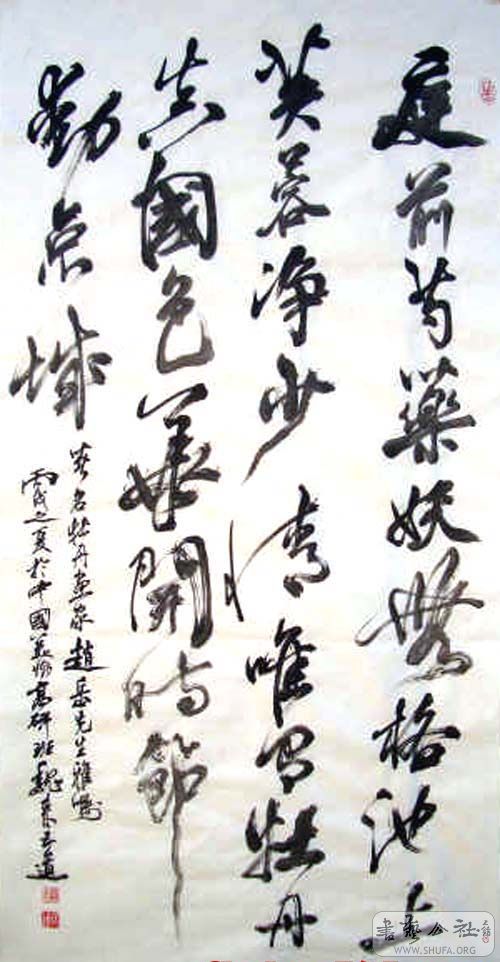 庭前芍藥妖無格池上
芙蓉净少情唯有牡丹
真國色華開時節
動京城
著名牡丹畫家趙岳先生雅囑
丙戌之夏於中國美协高研班魏
書藝公社
WWW.SHUFA.ORG